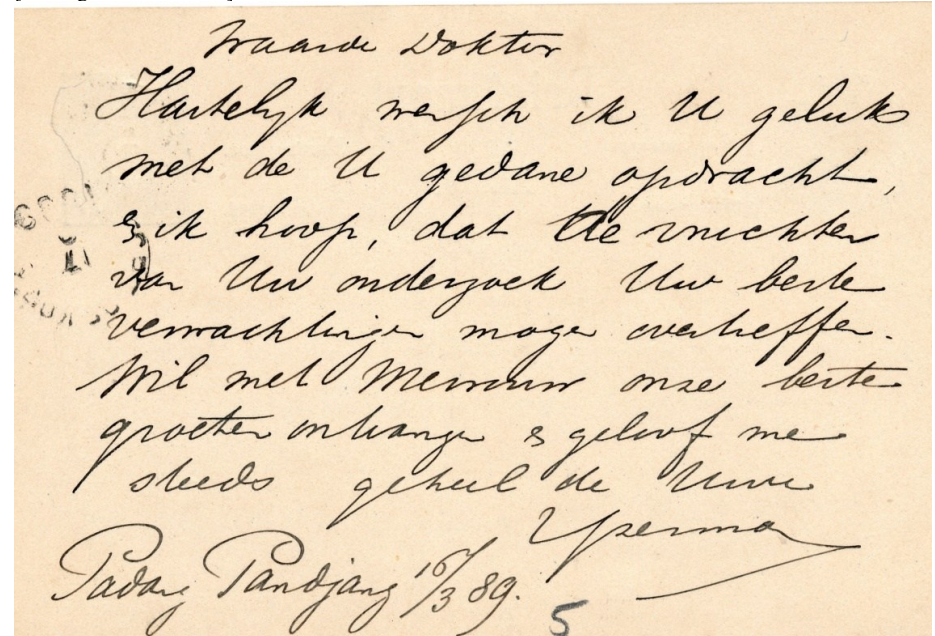 Waarde Dokter
Hartelyk wensch ik U geluk
met de U gedane opdracht,
& ik hoop, dat de vruchten
van Uw onderzoek Uw beste
verwachtingen mogen overtreffen.
Wil met Mevrouw onze beste
groeten ontvangen & geloof me
steeds geheel de Uwe
Yzerman
Padang Pandjang 16/3 89.
5